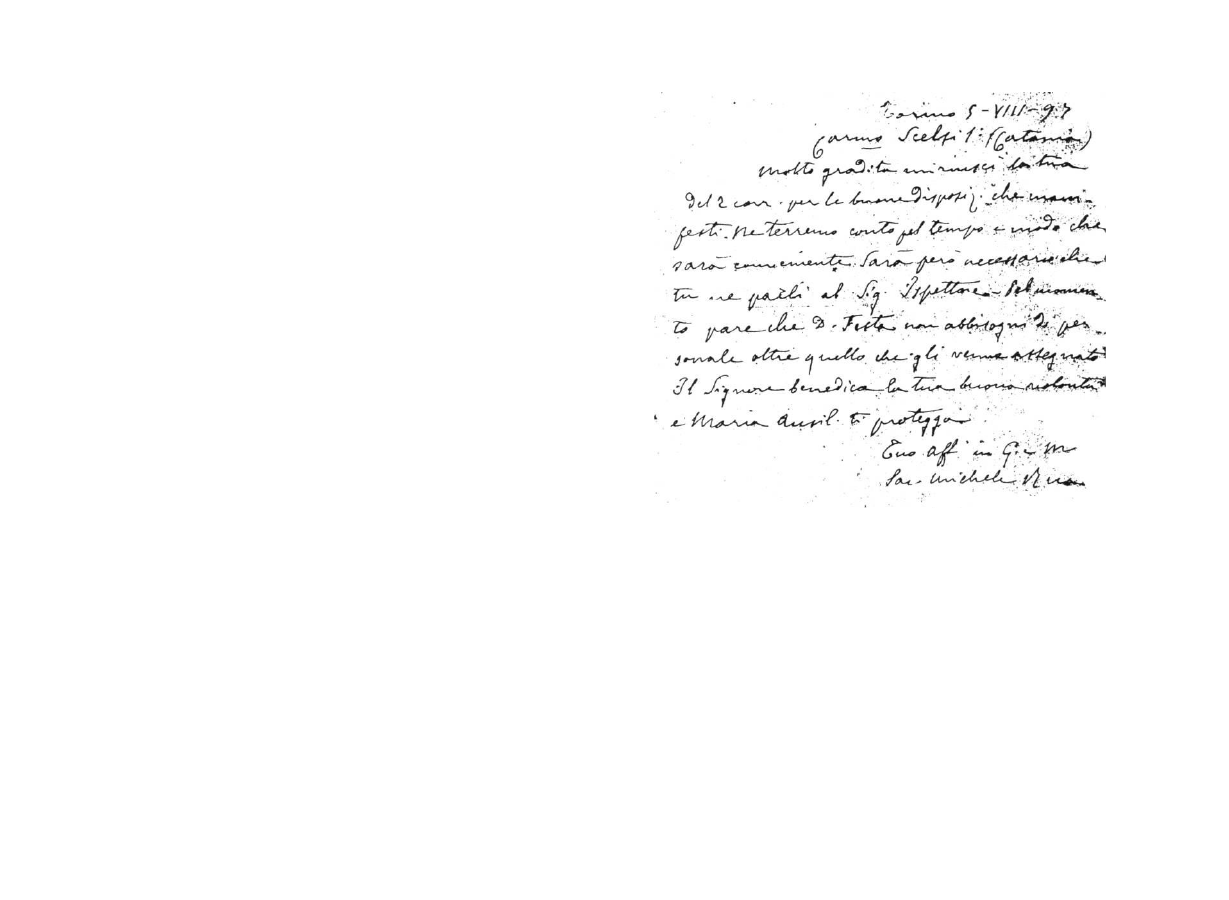 Torino 5-VIII-97
Carmo Scelsi (Catania)
Molto gradita mi riuscì la tua
del 2 corr. per le buone disposiz. che mani-
festi. Ne terremo conto pel tempo e modo che
sarà conveniente. Sarà però necessario che
tu ne parli al Sig. Ispettore - Pel momen
to pare che D. Festa non abbisogni di per-
sonale oltre quello che gli venne assegnato
Il Signore benedica la tua buona volontà
e Maria Ausil. ti protegga
Tuo aff in G. e M
Sac. Michele Rua